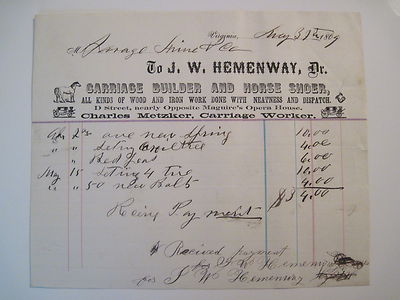 Virginia, Aug 31st 1869
M Savage Mine & Co
To J. W. HEMENWAY, Dr.
CARRIAGE BUILDER AND HORSE SHOER,
ALL KINDS OF WOOD AND IRON WORK DONE WITH NEATNESS AND DISPATCH.
D Street, nearly Opposite Maguire's Opera House.
Charles Metzker, Carriage Worker.
one new Spring 10.00
" " 4.00
" " 6.00
15 Seting 4 tire 10.00
" 50 new Bolts 4.00
$34.00
Received payment
J W Hemenway
for J W Hemenway